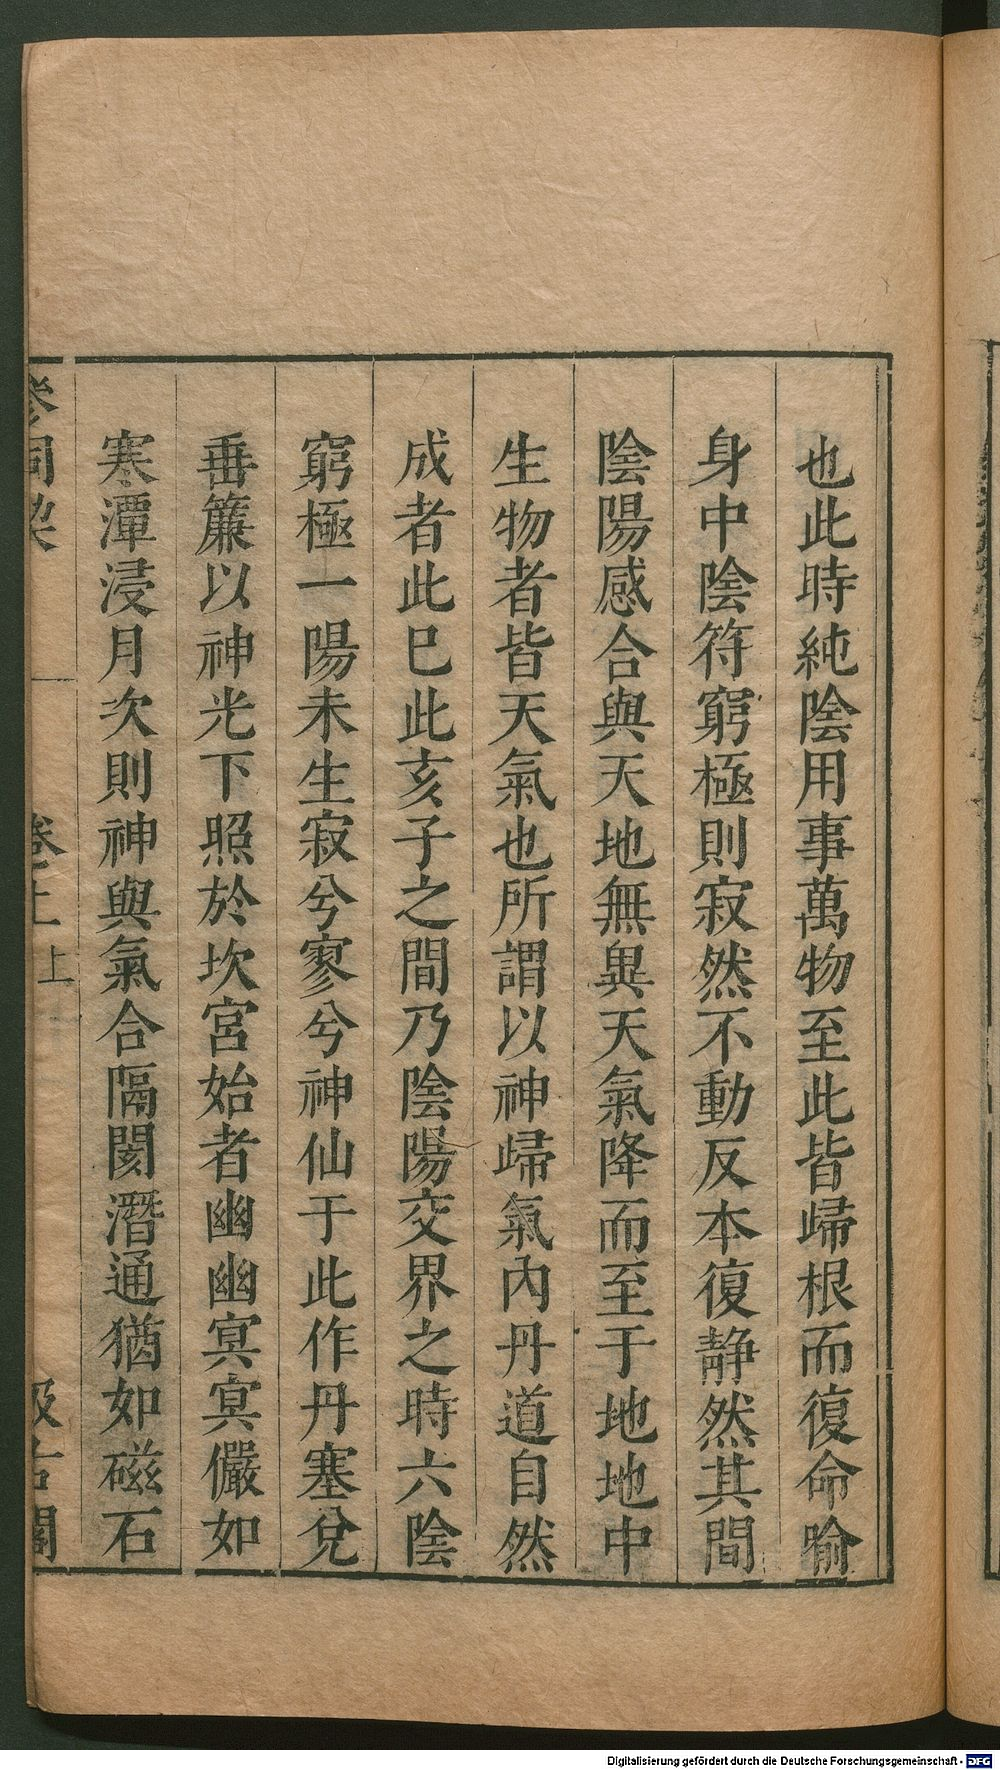 也此時純陰用事萬物至此皆歸根而復命喻
身中陰符窮極則寂然不動反本復靜然其間
陰陽感合與天地無異天氣降而至于地地中
生物者皆天氣也所謂以神歸氣內丹道自然
成者此巳此亥子之間乃陰陽交界之時六陰
窮極一陽未生寂兮寥兮神仙于此作丹塞兌
垂簾以神光下照於坎宮始者幽幽冥冥儼如
寒潭浸月次則神與氣合隔閡潛通猶如磁石
參同契 卷上上 汲古閣
Digitalisierung gefördert durch die Deutsche Forschungsgemeinschaft - DFG